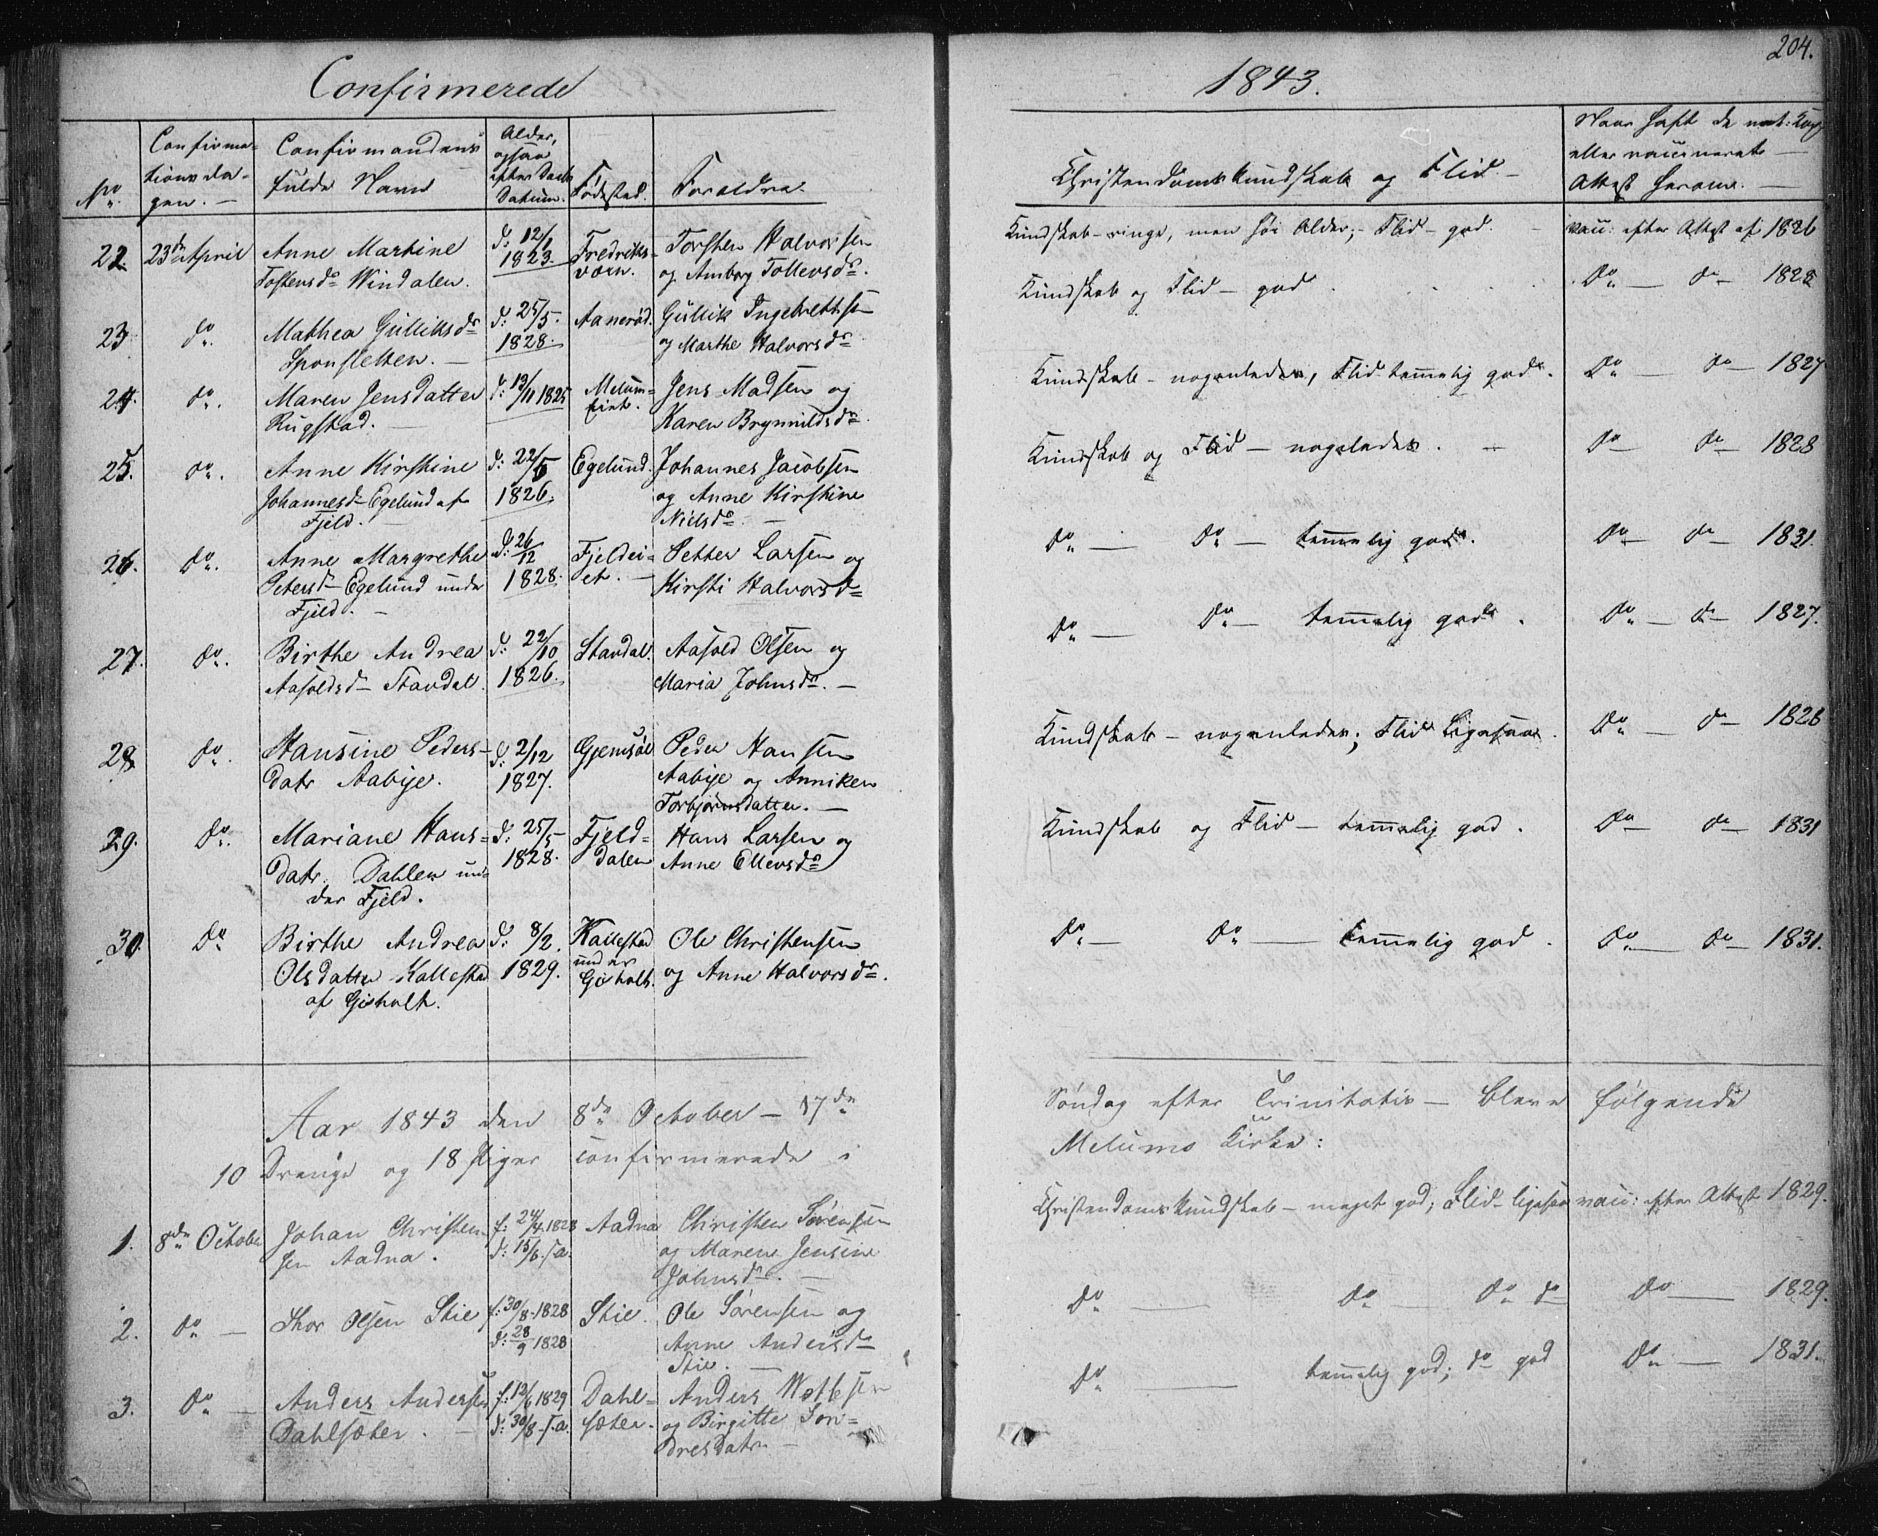 204.
Confirmerede
1843.
No.
Confirma-
tionsda-
gen. —
Confirmandens
fulde Navn
Alder,
ogsaa
efter Daabs
Datum.
Fødested.
Forældre.
Christendomskundskab og Flid —
Naar haft de nat: Kop
eller vaccinerede —
Attest herom. —
22. 23de April Anne Martine d: 12/1 Fredriks- Torsten Halvorsen
Tostensdr Windalen. 1823. værn. og Amborg Tollevsdr.
Kundskab – ringe, men høi Alder; – Flid – god. – vacc: efter Attest af 1826
23 do. Mathea Gulliksdr d: 25/5. Aanerød. Gullik Ingebrettsen
Sponsletten. — 1828. og Marthe Halvorsdr
Kundskab og Flid – god. Do — do — 1828
24. do. Maren Jensdatter d: 13/11 1825 Melum- Jens Madsen og
Rugstad. — eiet. Karen Brynnildsdr.
Kundskab – nogenledes, Flid temmelig god. Do — do — 1827
25. do. Anne Kirstine d: 22/5 Egelund. Johannes Jacobsen
Johannesdr Egelund af 1826. og Anne Kirstine
Fjeld. — Nielsdr. —
Kundskab og Flid – nogenledes. — Do — do — 1828
26. do. Anne Margrethe d: 26/12 Fjeldei- Petter Larsen og
Petersdr Egelund under 1828. et. — Kirsti Halvorsdr
Fjeld. —
Do — Do — temmelig god. Do — do — 1831.
27. do. Birthe Andrea d: 22/10 Stavdal. Aasold Olsen og
Aasoldsdr Stavdal. 1826. Maria Johnsdr. —
Do — Do — temmelig god. Do — do — 1827.
28 do. Hansine Peders- d: 2/12 Gjemsøe Peder Hansen
datr Aabye. 1827. Aabye og Anniken
Torbjørnsdatter. —
Kundskab – nogenledes; Flid ligesaa. Do — do — 1828
29. do. Mariane Hans- d: 25/5 Fjeld- Hans Larsen og
datr. Dahlen un- 1828. dalen Anne Ellevsdr
der Fjeld.
Kundskab og Flid – temmelig god. Do — do — 1831
30. do Birthe Andrea d: 8/2. Kallestad Ole Christensen
Olsdatter Kallestad 1829. under og Anne Halvorsdr.
af Gisholt. Gisholt.
Do — Do — temmelig god. Do — do — 1831.
Aar 1843 den 8de October – 17de Søndag efter Trinitatis – bleve følgende
10 Drenge og 18 Piger confirmerede i Melums Kirke:
1. 8de October Johan Christen- f: 24/4 1828 Aadna Christen Sørensen
sen Aadna. d: 15/6 s.a. og Maren Jensine
Johnsdr. —
Christendomskundskab – meget god; Flid ligesaa vacc: efter Attest 1829.
2. do — Thor Olsen Stie f: 30/8 1828 Stie. Ole Sørensen og
d: 28/9 1828 Anne Andersdr
Stie. —
Do — Do — Do do Do — 1829.
3. Do — Anders Andersen f: 12/6 1829 Dahl- Anders
Dahlsæter. — d: 30/8 s.a. sæter. og Birgitte Son-
dresdatr —
Do — temmelig god; do god Do — 1831.